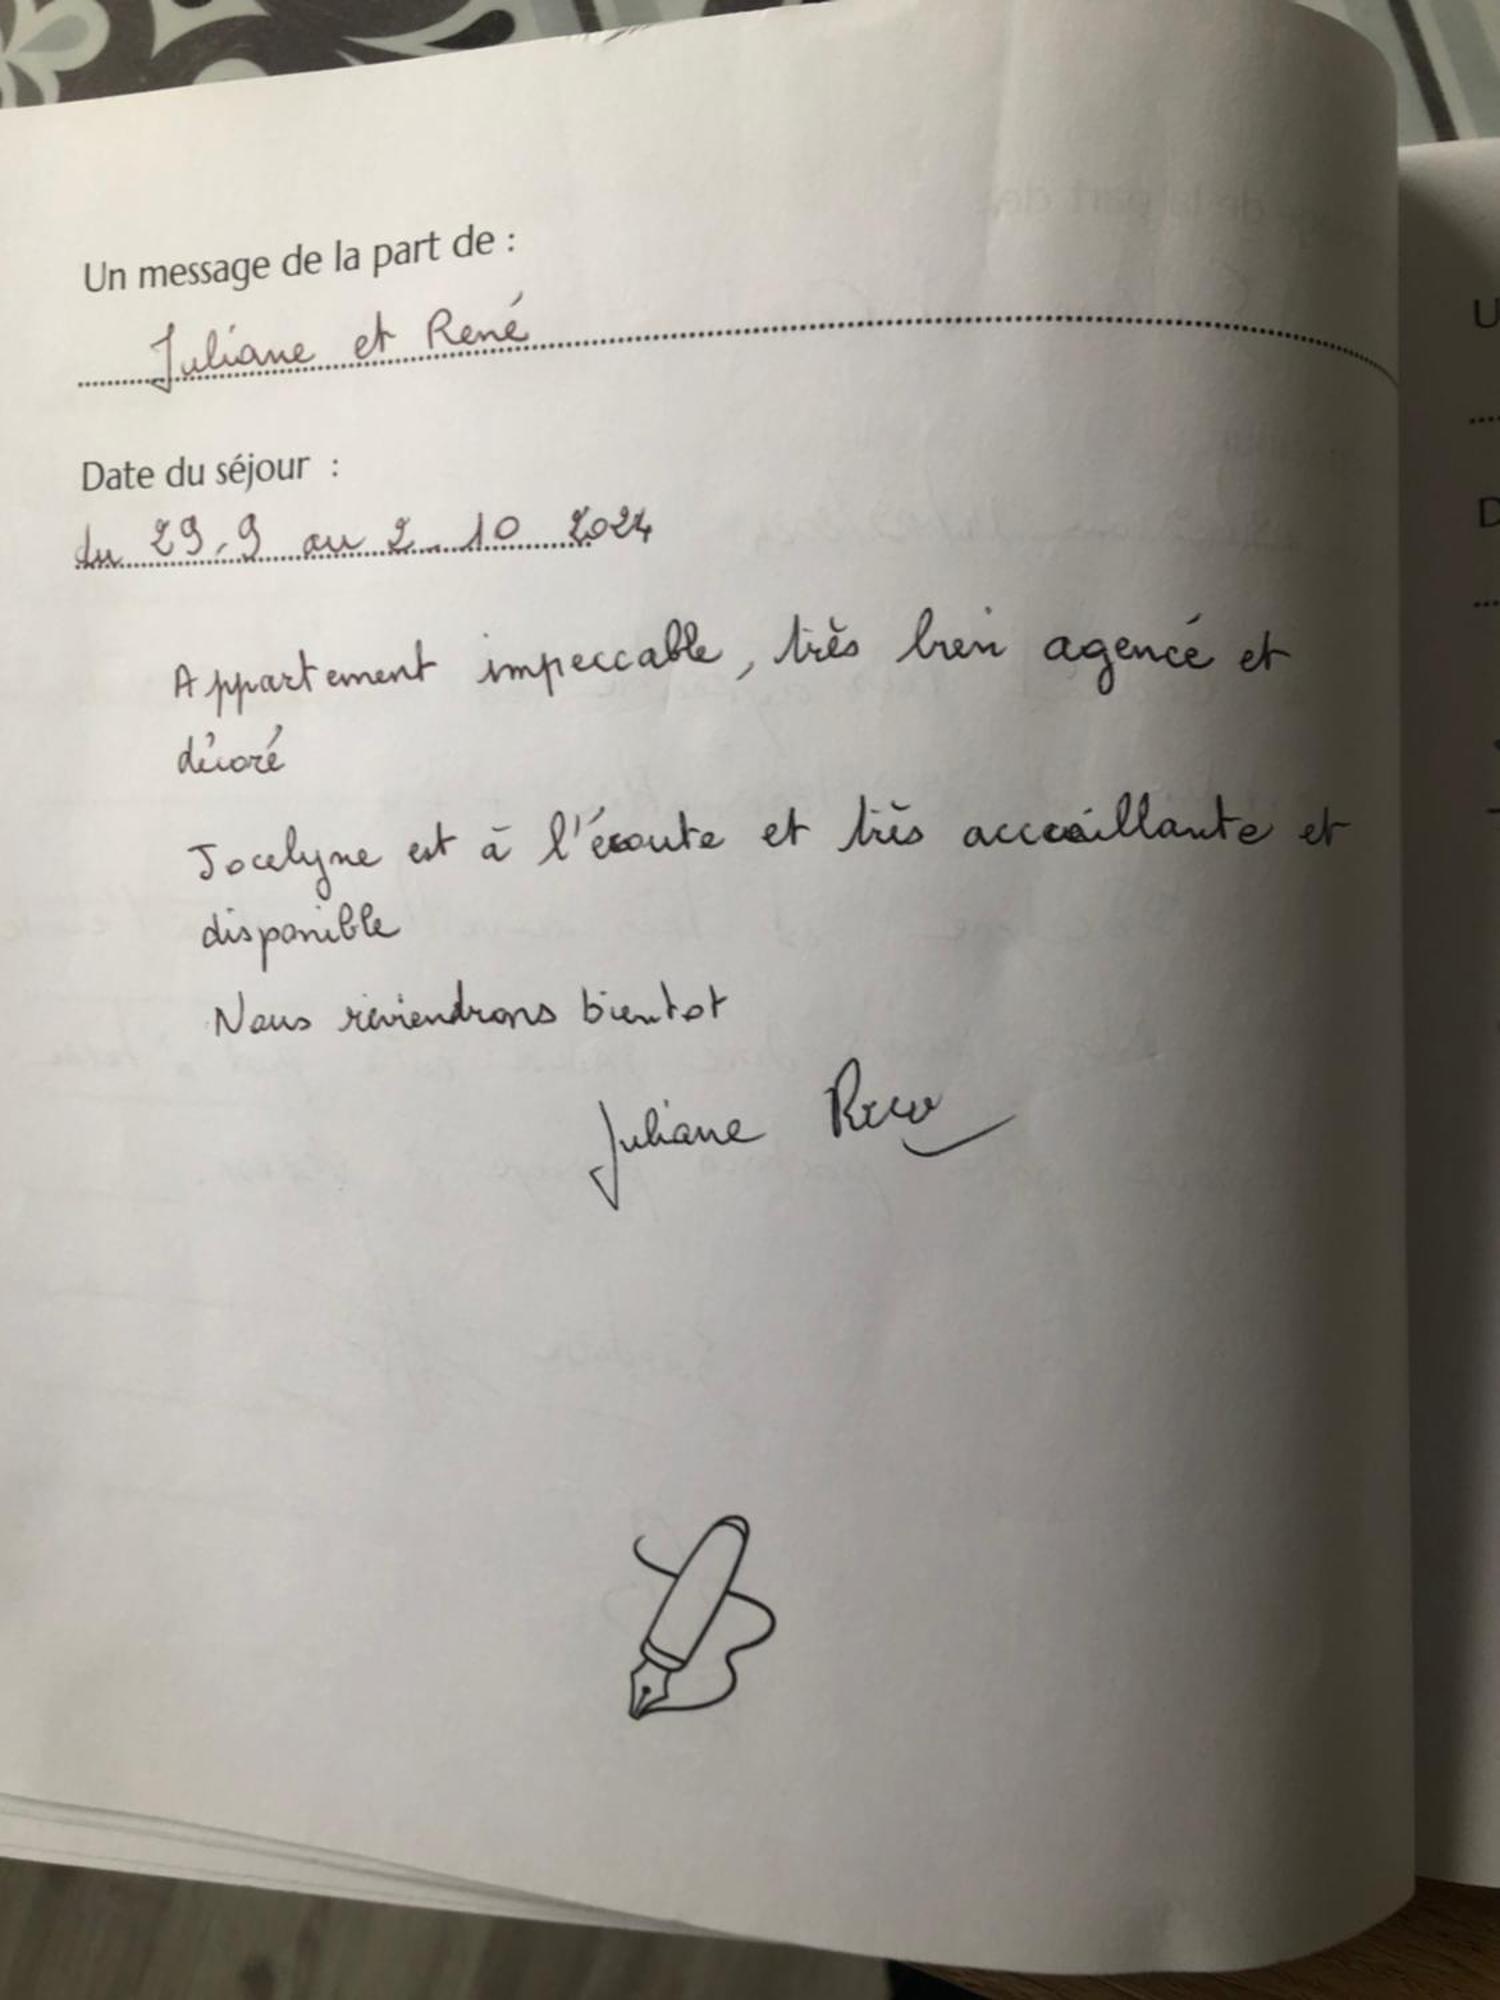 Un message de la part de :
Juliane et René
Date du séjour :
du 29.9 au 2.10 2024
Appartement impeccable, très bien agencé et
décoré
Jocelyne est à l'écoute et très acceuillante et
disponible
Nous reviendrons bientot
Juliane René
U
D